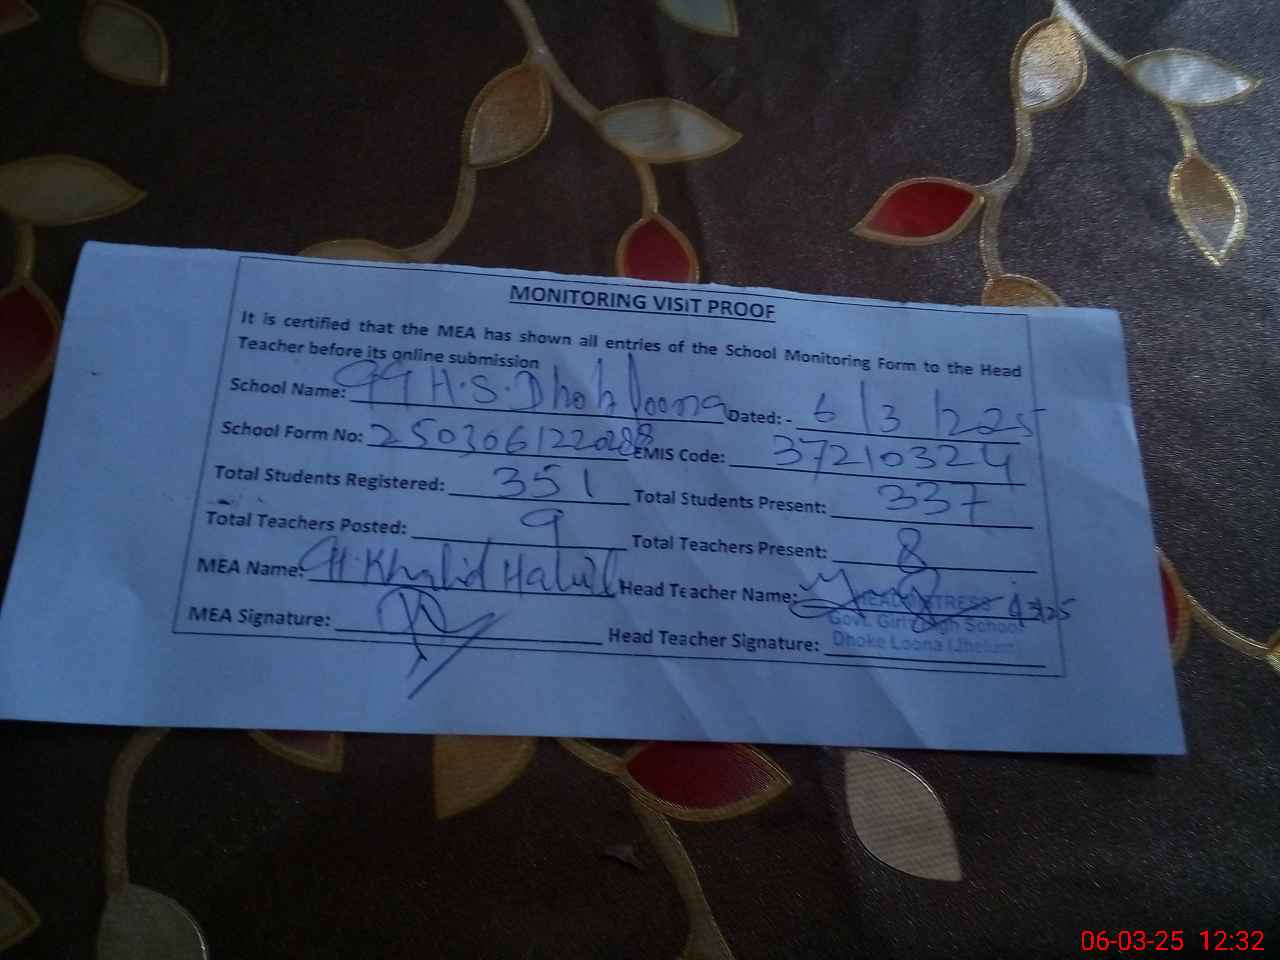 MONITORING VISIT PROOF
It is certified that the MEA has shown all entries of the School Monitoring Form to the Head
Teacher before its online submission
School Name: GGH.S.Dhok loona Dated: - 6/3/2025
School Form No: 250306122028 EMIS Code: 37210324
Total Students Registered: 351 Total Students Present: 337
Total Teachers Posted: 9 Total Teachers Present: 8
MEA Name: Khalid Head Teacher Name:
HEADMISTRESS
Govt. Girls High School
MEA Signature: Head Teacher Signature: Dhoke Loona (Jhelum)
06-03-25 12:32